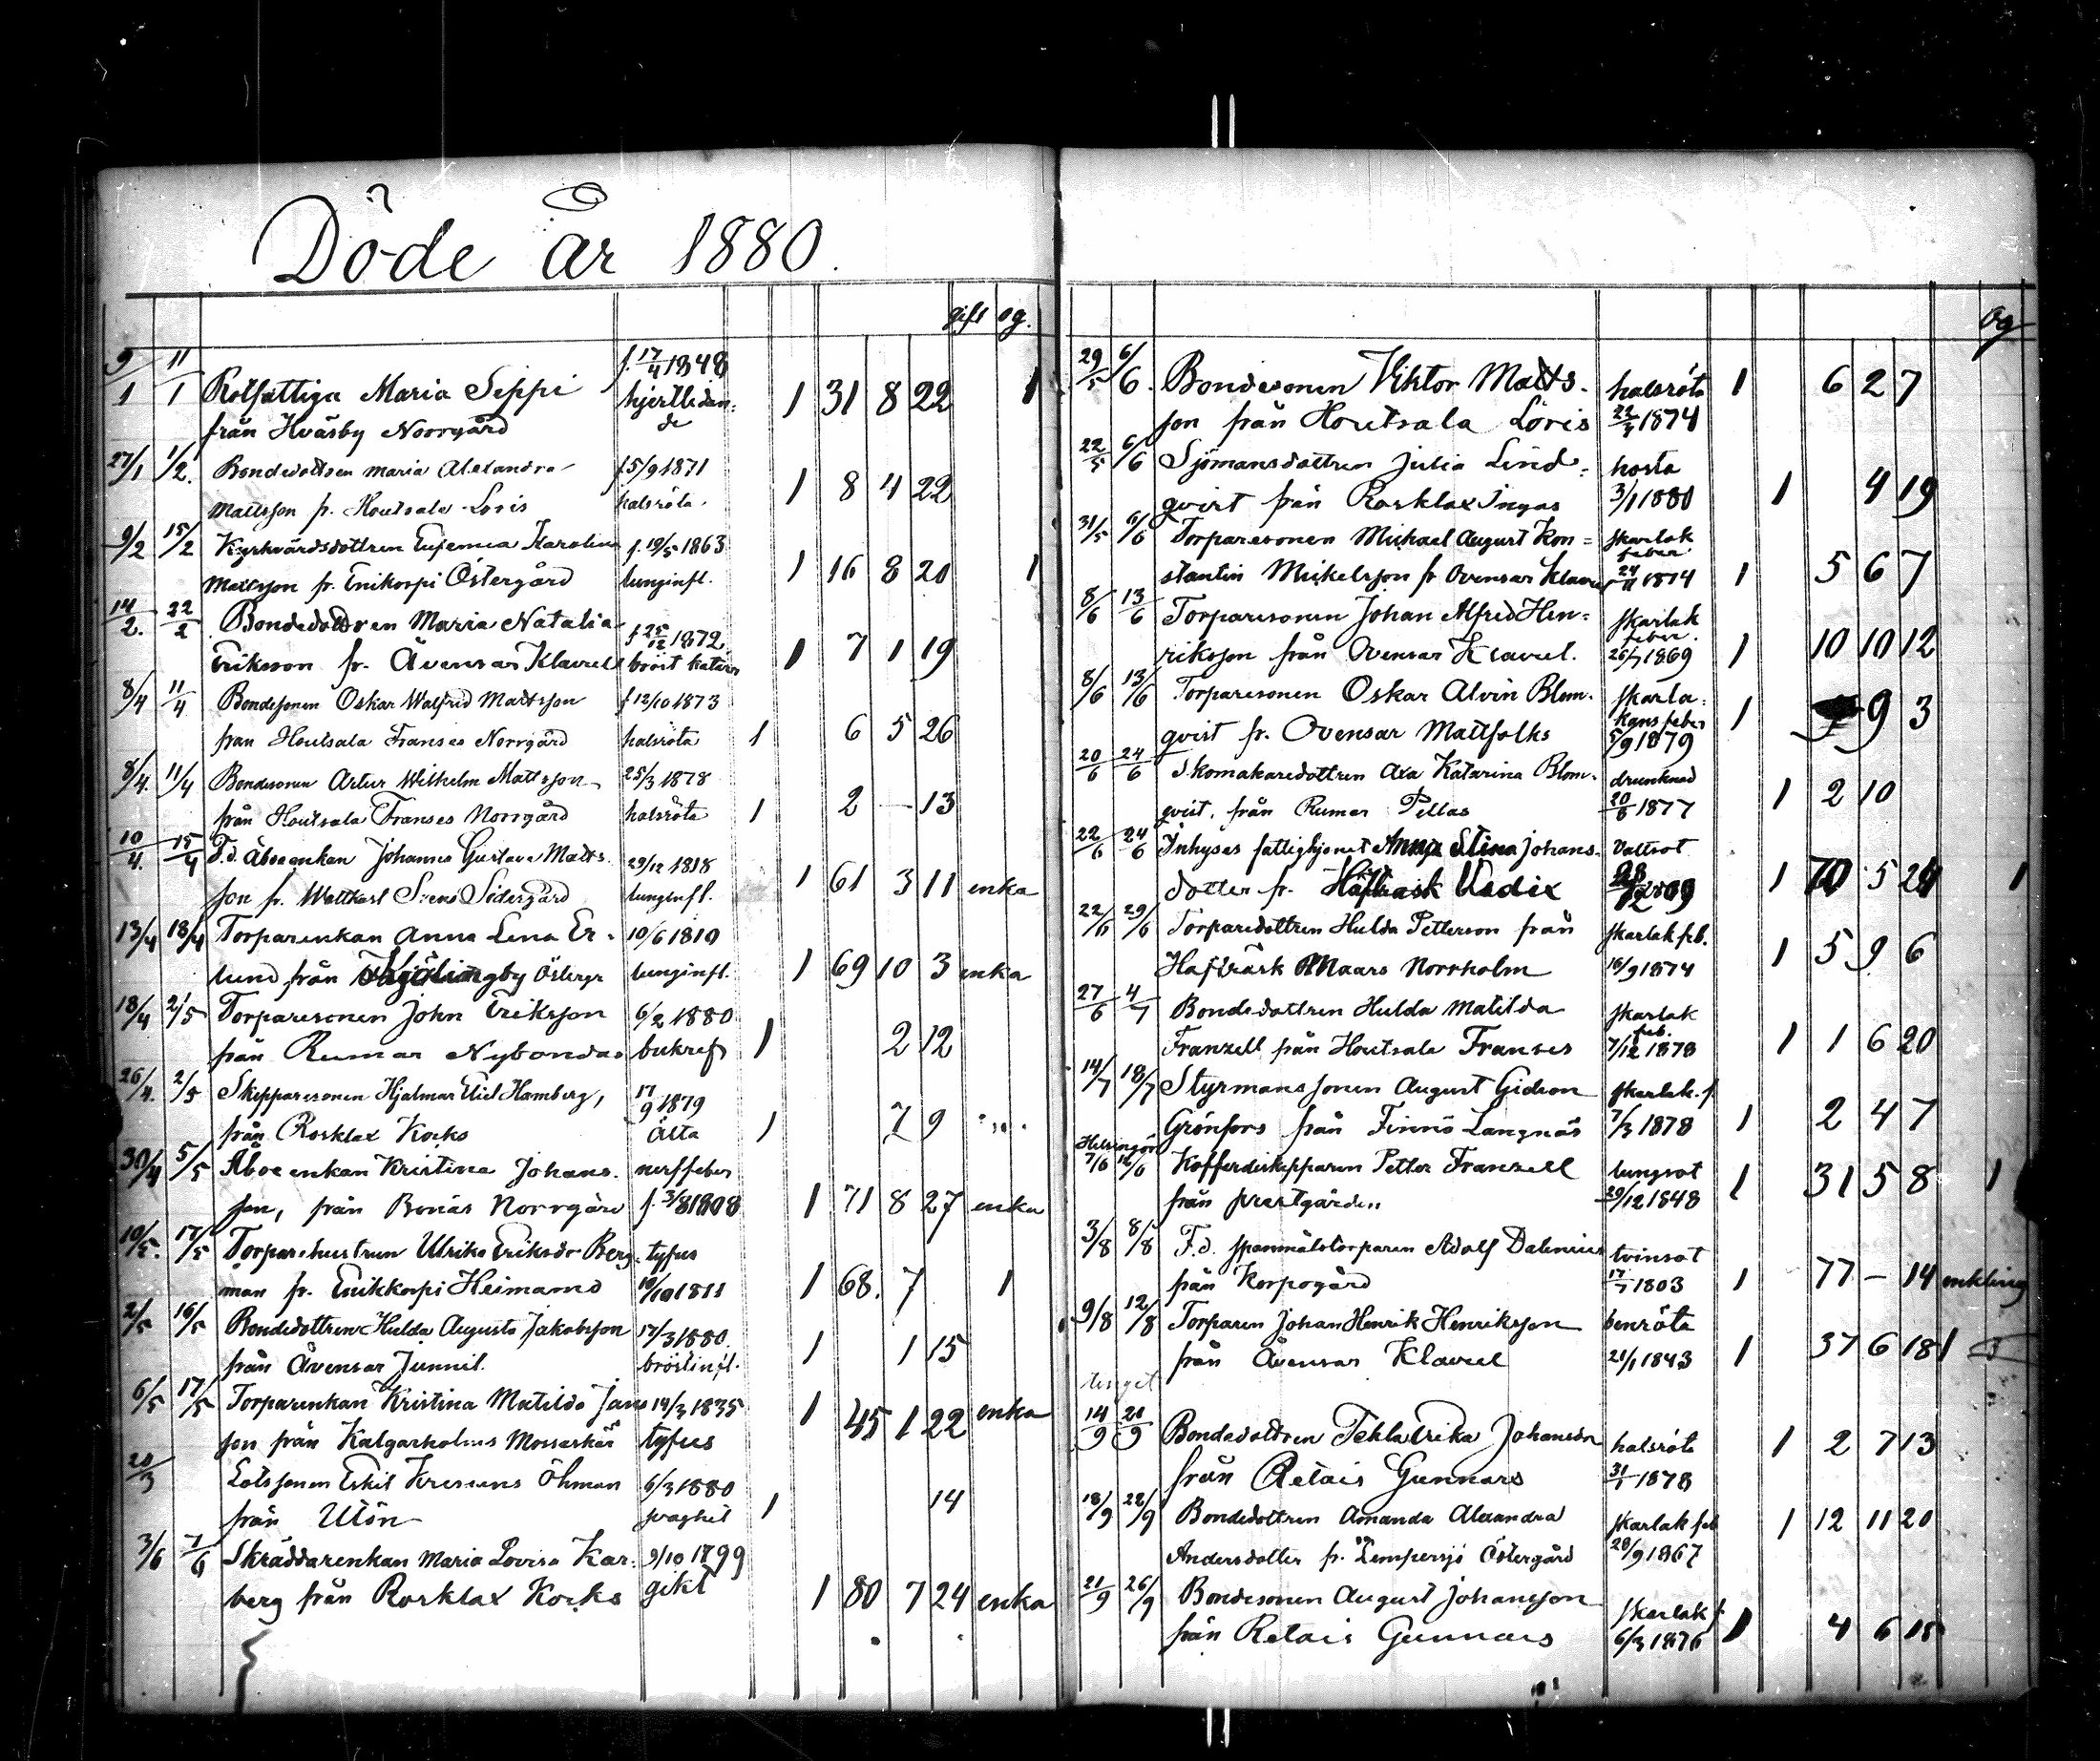 Döde år 1880.
gift og.
9/1 11/1 Rotfattiga Maria Seppi f. 17/4 1848 1 31 8 22 1
från Hväsby Norrgård hjertlidande
27/1 1/2. Bondedottren Maria Alexandra f 5/9 1871 1 8 4 22
Mattsson fr. Houtsala Löris halsröta
9/2 15/2 Kyrkvärdsdottren Eufemia Karolina f. 19/5 1863 1 16 8 20 1
Mattsson fr. Enikorpi Östergård lunginfl.
14/2. 22/2 Bondedottren Maria Natalia f 25/12 1872 1 7 1 19
Eriksson fr. Åvensar Klavuel bröst katarr
8/4 11/4 Bondesonen Oskar Walfrid Mattsson f 12/10 1873
från Houtsala Franses Norrgård halsröta 1 6 5 26
8/4. 11/4 Bondesonen Artur Wilhelm Mattsson 25/3 1878
från Houtsala Franses Norrgård halsröta 1 2 — 13
10/4. 15/4 F.d. Åboenkan Johanna Gustava Matts 29/12 1818
son fr. Wattkast Svens Södergård lunginfl. 1 61 3 11 enka
13/4 18/4 Torparenkan Anna Lena Er- 10/6 1810
lund från östergr lunginfl. 1 69 10 3 enka
18/4 2/5 Torparesonen John Eriksson 6/2 1880
från Rumar Nybondas bukref 1 2 12
26/4. 2/5 Skepparesonen Hjalmar Emil Hamberg, 17/9 1879
från Rosklax Kocks Älta 1 7 9
30/4 5/5 Åboenkan Kristina Johans- nerffeber
son, från Bonäs Norrgård f. 3/8 1808 1 71 8 27 enka
10/5. 17/5 Torparehustrun Ulrika Eriksdr Berg- tyfus
man fr. Enikkorpi Heimans 10/10 1811 1 68. 7 1
2/5 16/5 Bondedottren Hulda Augusta Jakobsson 17/3 1880.
från Åvensar Junnil. bröstinfl. 1 1 15
6/5 17/5 Torparenkan Kristina Matilda Jans 14/3 1835 1 45 1 22 enka
son från Kalgarholms Mossaskär tyfus
20/3 Lotssonen Eskil Kresens Öhman 6/3 1880
från Utön svaghet 1 14
3/6 7/6 Skräddarenkan Maria Lovisa Kar- 9/10 1799
berg från Rosklax Kocks gikt 1 80 7 24 enka
og
29/5 6/6. Bondesonen Viktor Matts- halsröta 1 6 2 7
son från Houtsala Löris 22/3 1874
22/5 6/6 Sjömansdottren Julia Lind- hosta
qvist från Rosklax Ingas 3/1 1880 1 4 19
31/5 6/6 Torparesonen Mickael August Kon= skarlak
feber
stantin Mickelsson fr Ovensar Klavuel 24/11 1874 1 5 6 7
8/6 13/6 Torparesonen Johan Alfred Hen= skarlak
feber.
riksson från Ovensar Klavuel. 26/7 1869 1 10 10 12
8/6 13/6 Torparesonen Oskar Alvin Blom- skarla-
kansfeber
qvist fr. Ovensar Mattfolks 5/9 1879 1 9 3
20/6 24/6 Skomakaredottren Axa Katarina Blom- drunknad
qvist, från Rumar Pellas 20/8 1877 1 2 10
22/6 24/6 Inhyses fattighjonet Anna Stina Johans- Vattsot
dotter fr. Häfträsk 1 70 5 24 1
22/6 29/6 Torparedottren Hulda Petterson från skarlak feb.
Hafträsk Maars Norrholm 16/9 1874 1 5 9 6
27/6 4/7 Bondedottren Hulda Matilda skarlak
feb.
Franzell från Houtsala Franses 7/12 1878 1 1 6 20
14/7 18/7 Styrmanssonen August Gideon skarlak. f.
Grönfors från Finnö Långnäs 7/3 1878 1 2 4 7
Helsingör
7/6 16/6 Kofferdiskepparen Petter Franzell lungsot
från prestgården 29/12 1848 1 31 5 8 1
3/8 8/8 F.d. spanmålstorparen Adolf Dalenius tvinsot
från Korpogård 17/7 1803 1 77 — 14 enkling
9/8 12/8 Torparen Johan Henrik Henriksson benröta
från Åvensar Klavuel 21/1 1843 1 37 6 18 1
14/9 20/9 Bondedottren Tekla Erika Johansdr halsröta 1 2 7 13
från Retais Gunnars 31/1 1878
18/9 22/9 Bondedottren Amanda Alexandra skarlak feb 1 12 11 20
Andersdotter fr. Lempersjö Östergård 28/9 1867
21/9 26/9 Bondesonen August Johansson skarlak f.
från Retais Gunnars 6/3 1876 1 4 6 15